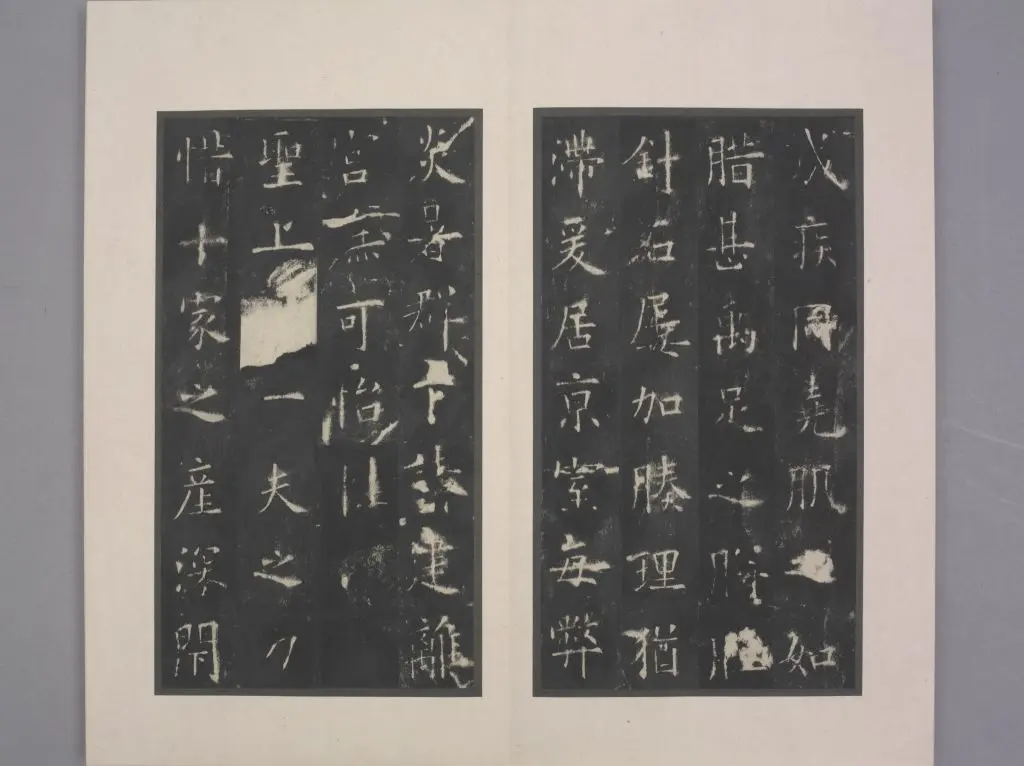 成疾同堯肌之如
腊甚禹足之胼胝
針石屢加腠理猶
滯爰居京室每弊
炎暑群下請建離
宮庶可怡
聖上一夫之力
惜十家之產深閉